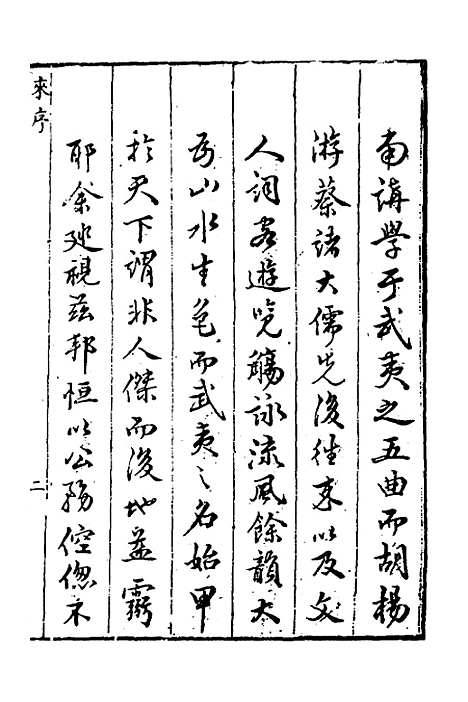 南講學于武夷之五曲而胡楊
游蔡諸大儒先後往來以及文
人詞客遊覽觴詠流風餘韻大
為山水生色而武夷之名始甲
於天下謂非人傑而後地益靈
耶余廵視茲邦恒以公務倥偬不
來序
二